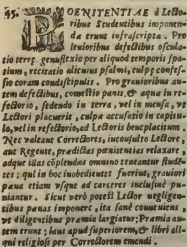 45.
POENITENTIAE à Lecto-
ribus Studentibus imponen-
dæ erunt infrascripta. Pro
leuioribus defectibus oscula-
tio terræ genuflexio per aliquod temporis spa-
tium, recitatio alicuius psalmi, culpæ confes-
sio coram condiscipulis. Pro grauioribus au-
tem defectibus, comestio panis, & aquæ in re-
fectorio, sedendo in terra, vel in mensa, vt
Lectori placuerit, culpæ accusatio in capitu-
lo, vel in refectorio, ad Lectoris beneplacitum
Nec valeant Correctores, inconsulto Lectore,
aut Regente, prædictas pœnitentias relaxare,
adque illas cõplendas omnino teneantur stude-
tes: qui in hoc inobedientes fuerint, grauiori
pœna etiam vsque ad carceres inclusiuè pu-
niantur. Sicut verò potest Lector negligen-
tibus pœnas imponere, ita sanè conueniens,
vt diligentibus præmia largiatur; Præmia au-
tem erunt; laus apud superiorem, & libri ali-
qui religiosi per Correctorem emendi.